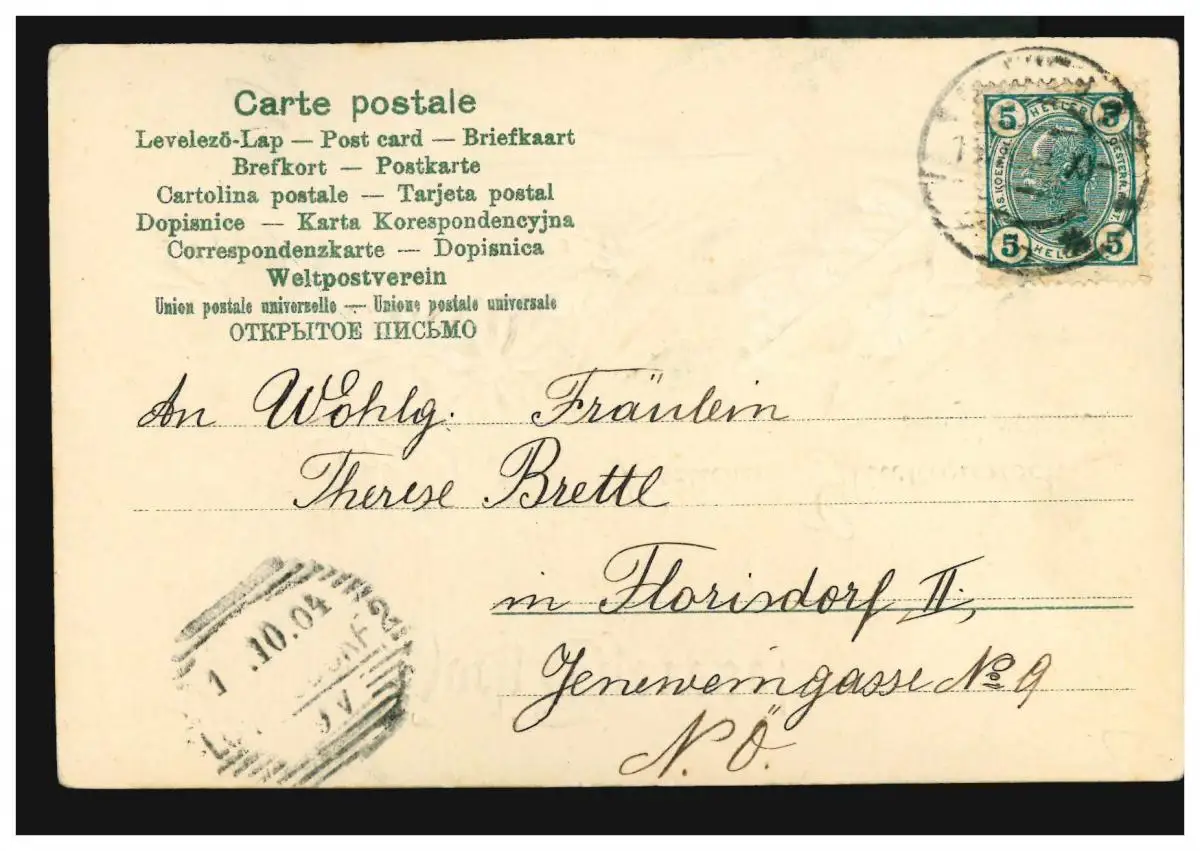 Carte postale
Levelezö-Lap — Post card — Briefkaart
Brefkort — Postkarte
Cartolina postale — Tarjeta postal
Dopisnice — Karta Korespondencyjna
Correspondenzkarte — Dopisnica
Weltpostverein
Union postale universelle — Unione postale universale
ОТКРЫТОЕ ПИСЬМО
5 HELLER 5
5 HELLER 5
An Wohlg. Fräulein
Therese Brettl
in Florisdorf II,
Jeneweingasse No 9
N. Ö.
1 .10.04